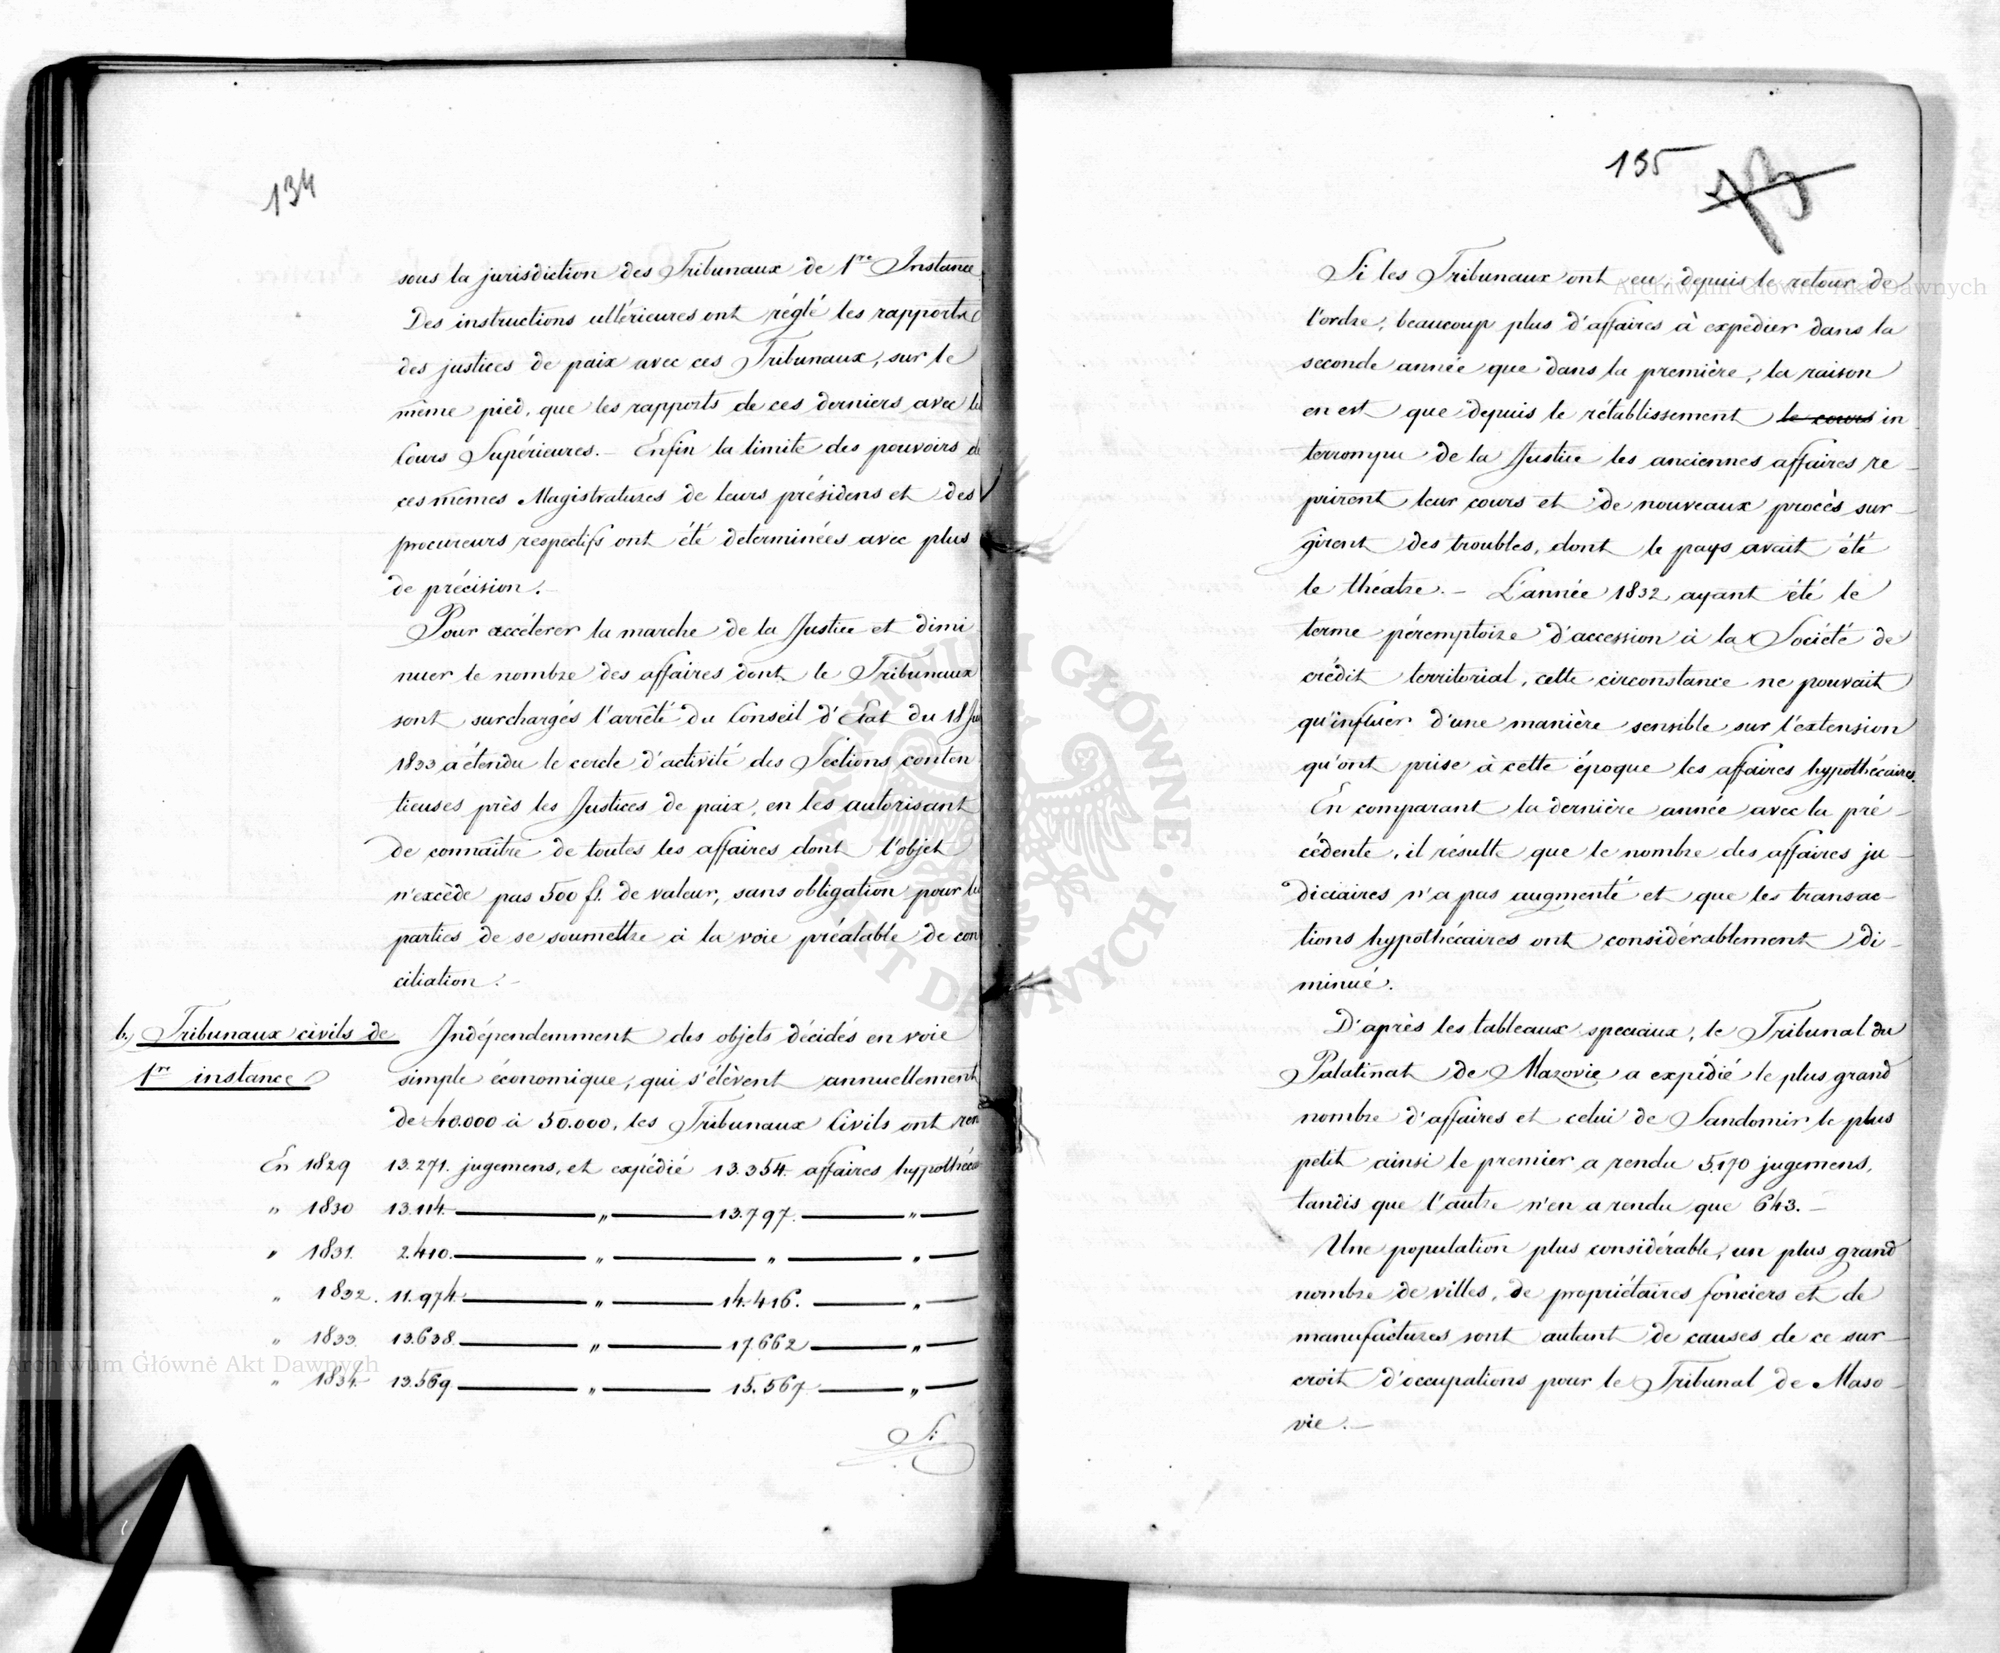 134
sous la jurisdiction des Tribunaux de 1re Instance
Des instructions ultérieures ont réglé les rapports
des justices de paix avec ces Tribunaux, sur le
même pied, que les rapports de ces derniers avec
Cours Supérieures. – Enfin la limite des pouvoirs
ces mêmes Magistratures de leurs présidens et des
procureurs respectifs ont été determinées avec plus
de précision.
Pour accélerer la marche de la Justice et dimi
nuer le nombre des affaires dont le Tribunaux
sont surchargés l'arrêté du Conseil d'Etat du 18
1833 a étendu le cercle d'activité des Sections conten
tieuses près les Justices de paix, en les autorisant
de connaître de toutes les affaires dont l'objet
n'excède pas 500 fl. de valeur, sans obligation pour
parties de se soumettre à la voie préalable de con
ciliation. –
b, Tribunaux civils de
1re instance
Indépendemment des objets décidés en voie
simple économique, qui s'élèvent annuellement
de 40.000 à 50.000, les Tribunaux Civils ont ren
En 1829 13.271. jugemens, et expédié 13.354. affaires
" 1830 13.114. — " — 13.797. — " —
" 1831. 2.410. — " — " — " —
" 1832. 11.974. — " — 14.416. — " —
" 1833. 13.638. — " — 17.662 — " —
" 1834. 13.569. — " — 15.567. — " —
Si
135
73
Si les Tribunaux ont eu, depuis le retour de
l'ordre, beaucoup plus d'affaires à expédier dans la
seconde année que dans la première, la raison
en est que depuis le rétablissement le cours in
terrompu de la Justice les anciennes affaires re –
prirent leur cours et de nouveaux procès sur –
girent des troubles, dont le pays avait été
le théatre. – L'année 1832 ayant été le
terme péremptoire d'accession à la Société de
crédit territorial, cette circonstance ne pouvait
qu'influer d'une manière sensible sur l'extension
qu'ont prise à cette époque les affaires hypothécaires.
En comparant la dernière année avec la pré –
cédente, il résulte que le nombre des affaires ju –
diciaires n'a pas augmenté et que les transac –
tions hypothécaires ont considérablement di –
minué.
D'après les tableaux speciaux, le Tribunal du
Palatinat de Mazovie a expédié le plus grand
nombre d'affaires et celui de Sandomir le plus
petit ainsi le premier a rendu 5.170 jugemens,
tandis que l'autre n'en a rendu que 643. –
Une population plus considérable, un plus grand
nombre de villes, de propriétaires fonciers et de
manufactures sont autant de causes de ce sur –
croit d'occupations pour le Tribunal de Maso –
vie. –
Archiwum Główne Akt Dawnych
Archiwum Główne Akt Dawnych
ARCHIWUM GŁÓWNE · AKT DAWNYCH ·